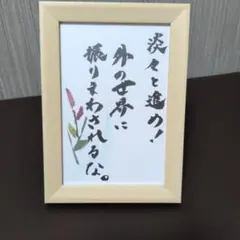 淡々と進め!
外の世界に
振りまわされるな。